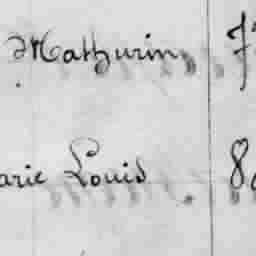 Mathurin
arie Louis